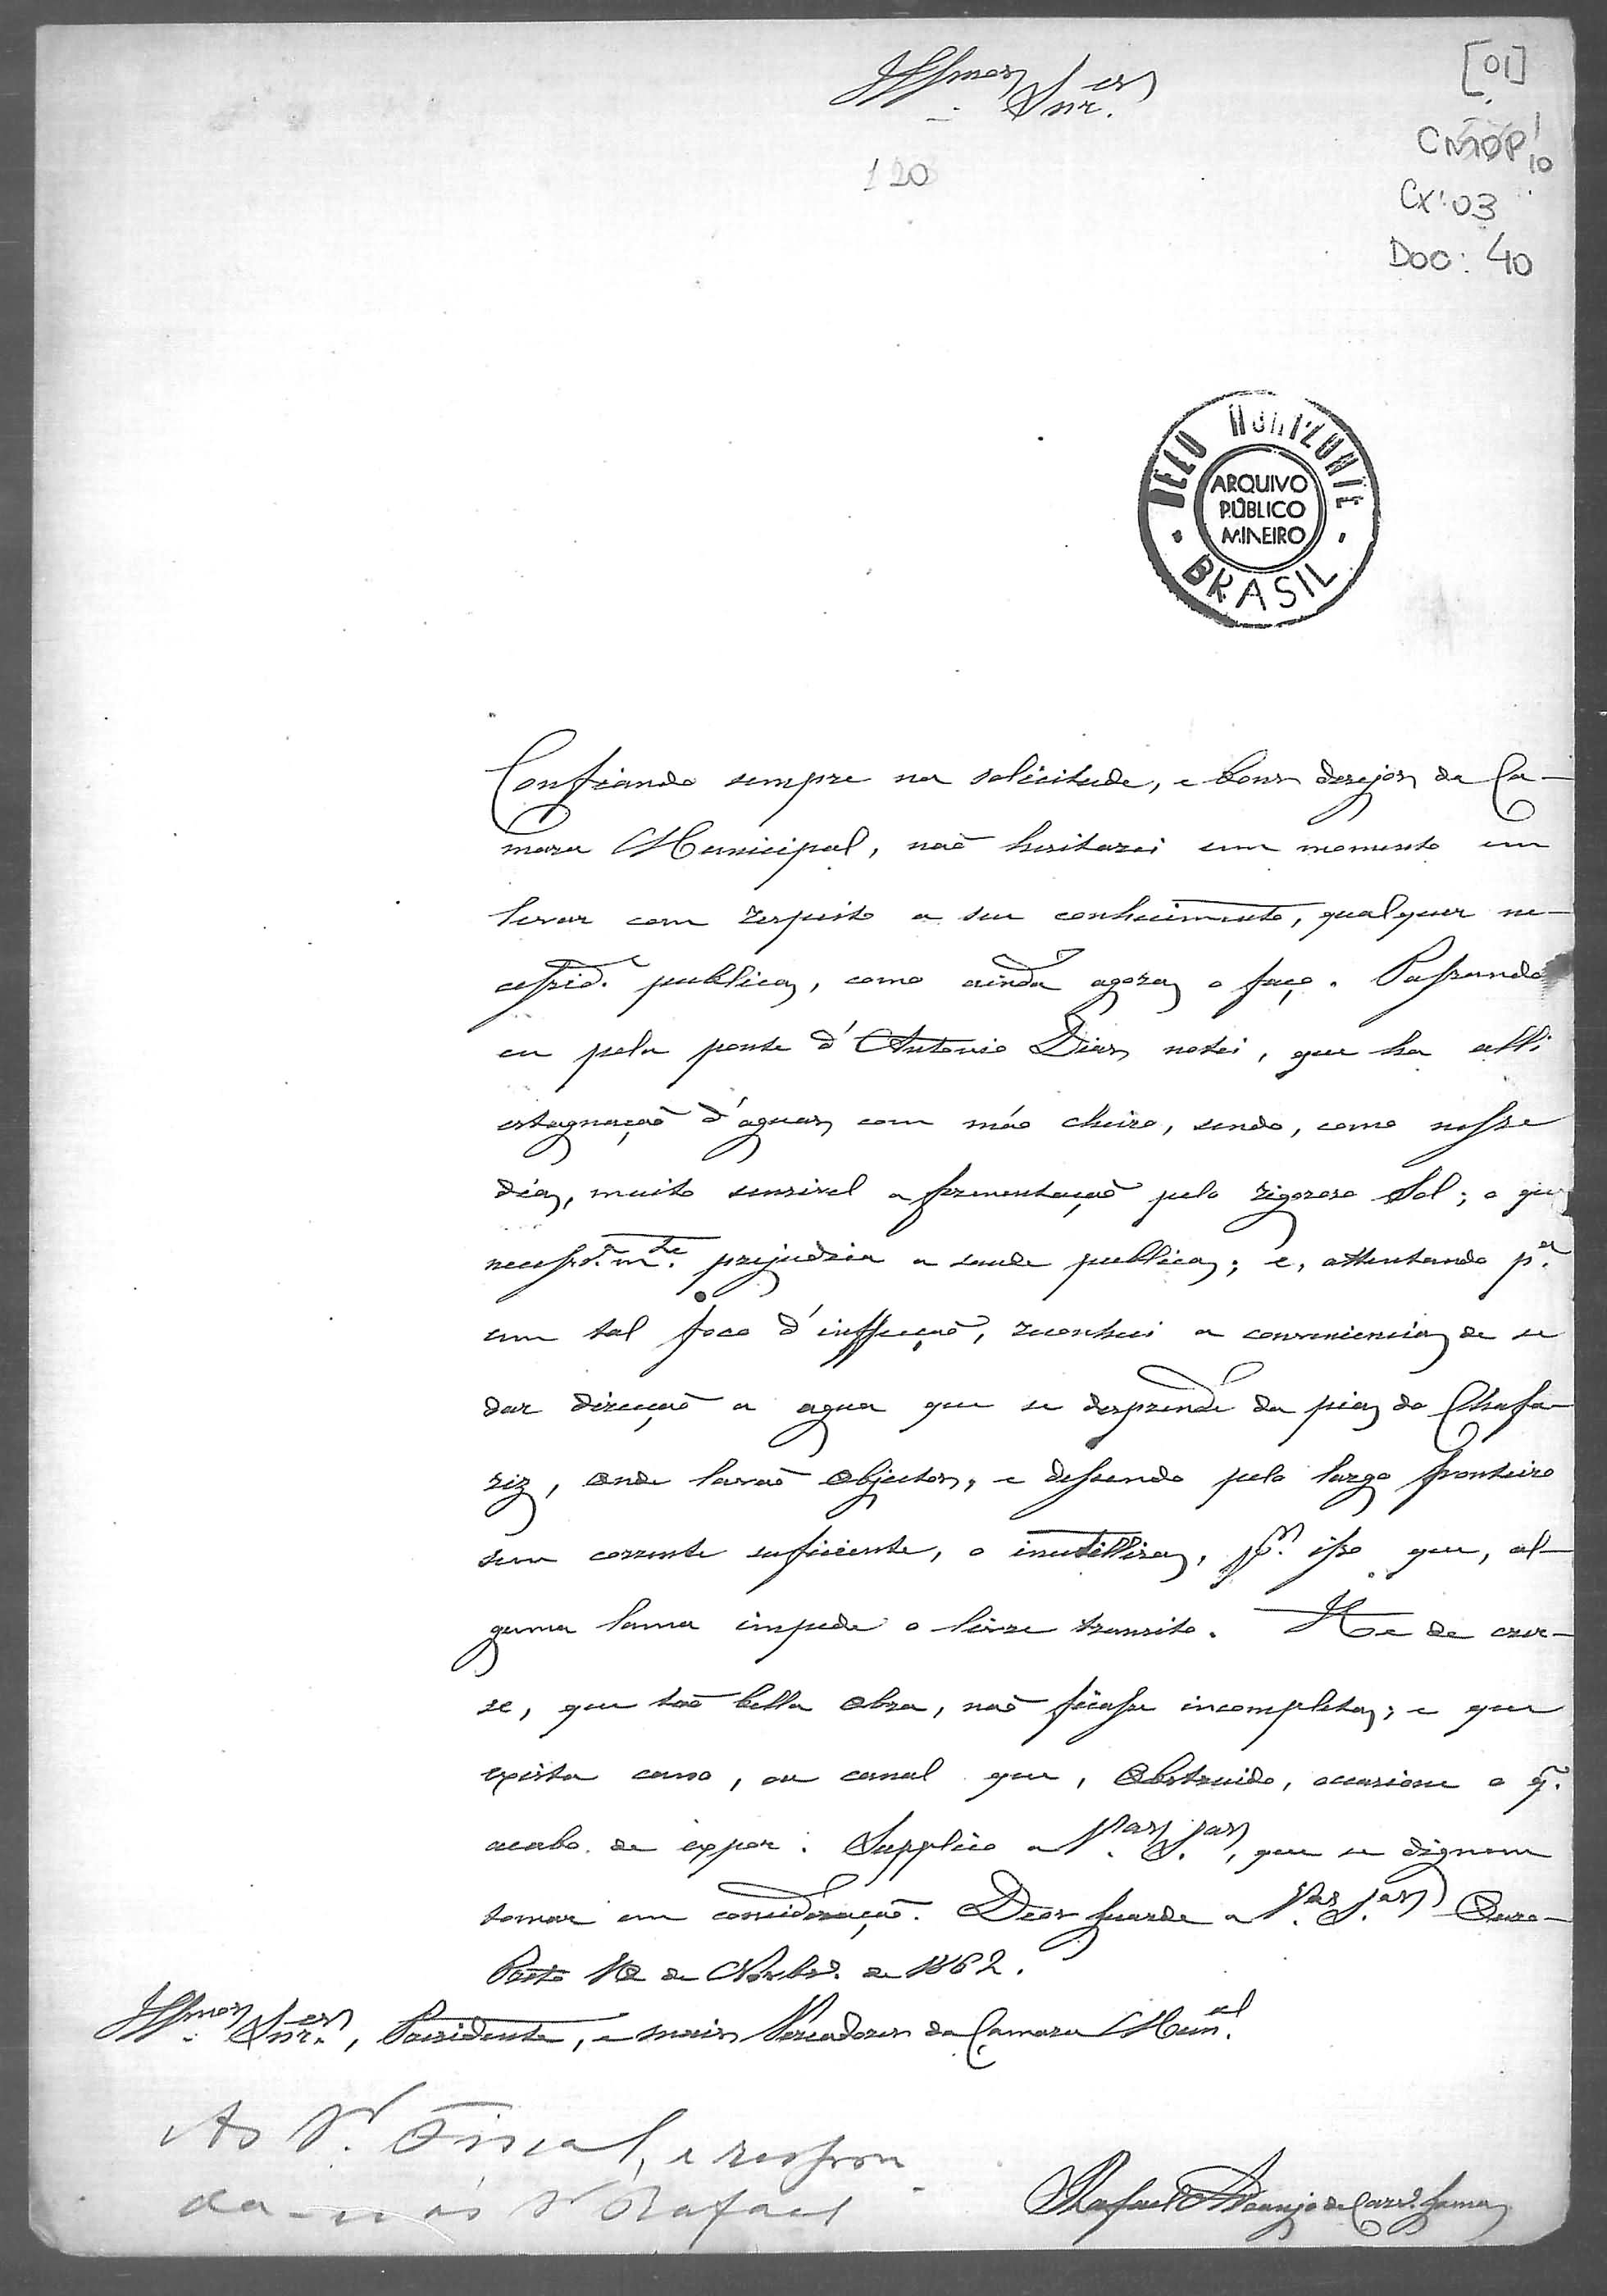 Illmos Snres.
[01]
CMOP 1/10
Cx: 03
Doc: 40
120
BELO HORIZONTE
ARQUIVO
PÚBLICO
MINEIRO
BRASIL
Confiando sempre na solicitude, e bons desejos da Ca-
mara Municipal, naõ hesitarei um momento em
levar com respeito a seu conhecimento, qualquer ne-
cessid.e publica, como ainda agora o faço. Passando
eu pela ponte d'Antonio Dias notei, que ha alli
estagnaçaõ d'aguas com máo cheiro, sendo, como nesse
dia, muito sensivel a fermentaçaõ pelo rigoroso Sol; o que
necessr.amte. prejudica a saude publica; e, attentando p.a
um tal foco d'inffecçaõ, reconheci a conveniencia de se
dar direcçaõ a agua que se desprende da pia do Chafa-
riz, onde lavaõ objectos, e dessendo pelo largo fronteiro
sem corrente suficiente, o inutillisa, p.r isso que, al-
guma lama impede o livre transito. He de crer-
se, que taõ bella obra, naõ ficasse incompleta; e que
exista cano, ou canal que, obstruido, occasione o q.
acabo de expor. Supplico a V.as S.as, que se dignem
tomar em consideraçaõ. Deos Guarde a V.as S.as Ouro-
Preto 12 de Novbr.o de 1862.
Illmos. Snres., Presidente, e mais Vereadores da Camara Munal.
Ao Sr. Fiscal, e respon
da-se ao Sr Rafael
Rafael Araujo de